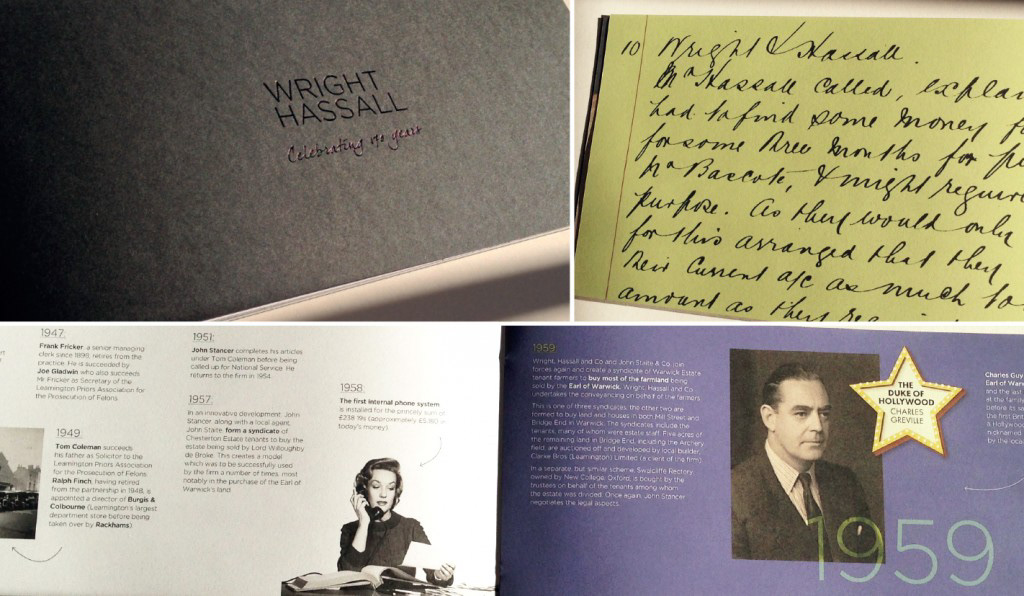 WRIGHT
HASSALL
Celebrating 170 years
10 Wright & Hassall.
Mr Hassall called,
had to find some money
for some three months for
Mr Bascote, & might
purpose. As they would only
for this arranged that they
their current a/c as much
amount as they
1947:
Frank Fricker, a senior managing
clerk since 1898, retires from the
practice. He is succeeded by
Joe Gladwin who also succeeds
Mr Fricker as Secretary of the
Leamington Priors Association for
the Prosecution of Felons.
1949:
Tom Coleman succeeds
his father as Solicitor to the
Leamington Priors Association
for the Prosecution of Felons.
Ralph Finch, having retired
from the partnership in 1948, is
appointed a director of Burgis &
Colbourne (Leamington's largest
department store before being
taken over by Rackhams).
1951:
John Stancer completes his articles
under Tom Coleman before being
called up for National Service. He
returns to the firm in 1954.
1957:
In an innovative development, John
Stancer, along with a local agent,
John Staite, form a syndicate of
Chesterton Estate tenants to buy the
estate being sold by Lord Willoughby
de Broke. This creates a model
which was to be successfully used
by the firm a number of times, most
notably in the purchase of the Earl of
Warwick's land.
1958:
The first internal phone system
is installed for the princely sum of
£238 19s (approximately
today's money)
1959:
Wright, Hassall and Co and John Staite & Co join
forces again and create a syndicate of Warwick Estate
tenant farmers to buy most of the farmland being
sold by the Earl of Warwick. Wright, Hassall and Co
undertakes the conveyancing on behalf of the farmers.
This is one of three syndicates; the other two are
formed to buy land and houses in both Mill Street and
Bridge End in Warwick. The syndicates include the
tenants, many of whom were estate staff. Five acres of
the remaining land in Bridge End, including the Archery
Field, are auctioned off and developed by local builder,
Clarke Bros (Leamington) Limited (a client of the firm).
In a separate, but similar scheme, Swalcliffe Rectory,
owned by New College, Oxford, is bought by the
trustees on behalf of the tenants among whom
the estate was divided. Once again, John Stancer
negotiates the legal aspects.
THE
DUKE OF
HOLLYWOOD
CHARLES
GREVILLE
1959
Charles Guy
Earl of Warw
and the last
at the famil
before its s
the first
a Hollywoo
nicknamed
by the loca